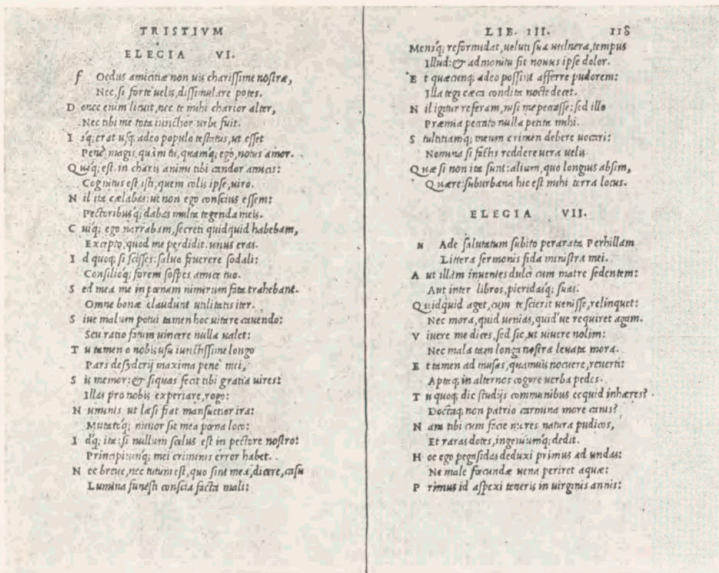 TRISTIVM
ELEGIA VI.
F Oedus amicitiæ non uis charissime nostræ,
Nec, si forte uelis, dissimulare potes.
D onec enim licuit, nec te mihi charior alter,
Nec tibi me tota iunctior urbe fuit.
I sq; erat usq; adeo populo testatus, ut esset
Penè magis, quàm tu, quamq; ego, notus amor.
Q uiq; est in charis animi tibi candor amicis:
Cognitus est isti, quem colis ipse, uiro.
N il ita celabas: ut non ego conscius essem:
Pectoribusq; dabas multa tegenda meis.
C uiq; ego narrabam, secreti quidquid habebam,
Excepto, quod me perdidit. unus eras.
I d quoq; si scisses: saluo fruerere sodali:
Consilioq; forem sospes amice tuo.
S ed mea me in pœnam nimirum fata trahebant.
Omne bonæ claudunt utilitatis iter.
S iue malum potui tamen hoc uitare cauendo:
Seu ratio fatum uincere nulla ualet:
T u tamen o nobis usu iunctissime longo
Pars desyderij maxima penè mei,
S is memor: & siquas fecit tibi gratia uires:
Illas pro nobis experiare, rogo:
N uminis ut læsi fiat mansuetior ira:
Mutatoq; minor sit mea pœna loco:
I dq; ita: si nullum scelus est in pectore nostro:
Principiumq; mei criminis error habet.
N ec breue, nec tutum est, quo sint mea, dicere, casu
Lumina funesti conscia facta mali:
LIB. III. 118
Mensq; reformidat, ueluti sua uulnera, tempus
Illud: & admonitu fit nouus ipse dolor.
E t quæcunq; adeo possint afferre pudorem:
Illa tegi cæca condita nocte decet.
N il igitur referam, nisi me peccasse: sed illo
Præmia peccato nulla petita mihi.
S tultitiamq; meum crimen debere uocari:
Nomina si factis reddere uera uelis.
Q uæ si non ita sunt: alium, quo longius absim,
Quære: suburbana hic est mihi terra locus.
ELEGIA VII.
u Ade salutatum subito perarata Perhillam
Littera sermonis fida ministra mei.
A ut illam inuenies dulci cum matre sedentem:
Aut inter libros, pieridasq; suas.
Q uidquid aget, cum te scierit uenisse, relinquet:
Nec mora, quid uenias, quid'ue requiret agam.
V iuere me dices, sed sic, ut uiuere nolim:
Nec mala tam longa nostra leuata mora.
E t tamen ad musas, quamuis nocuere, reuerti:
Aptaq; in alternos cogere uerba pedes.
T u quoq; dic studijs communibus ecquid inhæres?
Doctaq; non patrio carmina more canis?
N am tibi cum facie mores natura pudicos,
Et raras dotes, ingeniumq; dedit.
H oc ego pegasidas deduxi primus ad undas:
Ne male fœcundæ uena periret aquæ:
P rimus id aspexi teneris in uirginis annis: